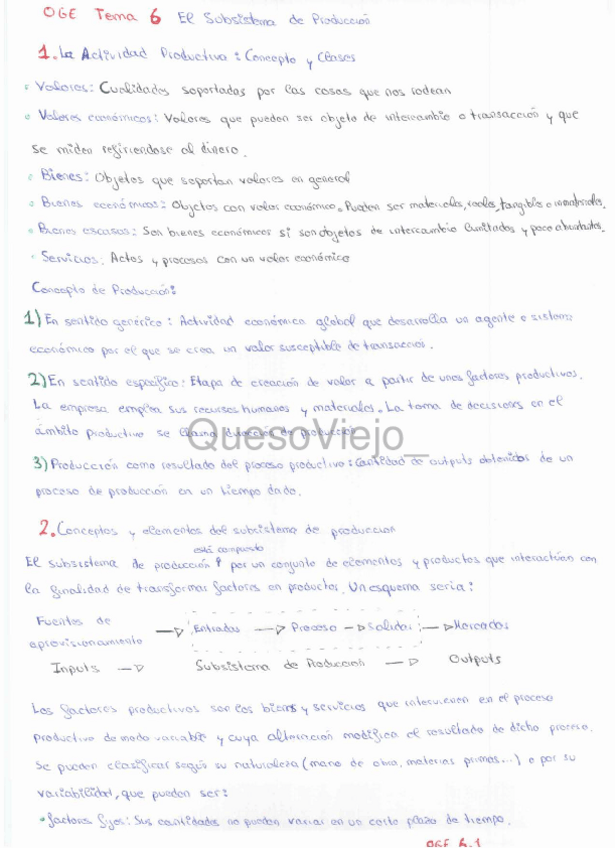 OGE Tema 6 El Subsistema de Producción
1. La Actividad Productiva: Concepto y Clases
• Valores: Cualidades soportadas por las cosas que nos rodean
• Valores económicos: Valores que pueden ser objeto de intercambio o transacción y que
se miden refiriendose al dinero.
• Bienes: Objetos que soportan valores en general
• Bienes económicos: Objetos con valor económico. Pueden ser materiales, reales, tangibles o inmateriales.
• Bienes escasos: Son bienes económicos si son objetos de intercambio limitados y poco abundantes.
• Servicios: Actos y procesos con un valor económico
Concepto de Producción:
1) En sentido genérico: Actividad económica global que desarrolla un agente o sistema
económico por el que se crea un valor susceptible de transacción.
2) En sentido específico: Etapa de creación de valor a partir de unos factores productivos.
La empresa emplea sus recursos humanos y materiales. La toma de decisiones en el
ámbito productivo se llama dirección de producción
QuesoViejo_
3) Producción como resultado del proceso productivo: Cantidad de outputs obtenidos de un
proceso de producción en un tiempo dado.
2. Conceptos y elementos del subsistema de producción
está compuesto
El subsistema de producción por un conjunto de elementos y productos que interactúan con
la finalidad de transformar factores en productos. Un esquema sería:
Fuentes de
aprovisionamiento → Entradas → Proceso → Salidas → Mercados
Inputs → Subsistema de Producción → Outputs
Los factores productivos son los bienes y servicios que intervienen en el proceso
productivo de modo variable y cuya alteración modifica el resultado de dicho proceso.
Se pueden clasificar según su naturaleza (mano de obra, materias primas...) o por su
variabilidad, que pueden ser:
• Factores fijos: Sus cantidades no pueden variar en un corto plazo de tiempo.
OGE 6.1